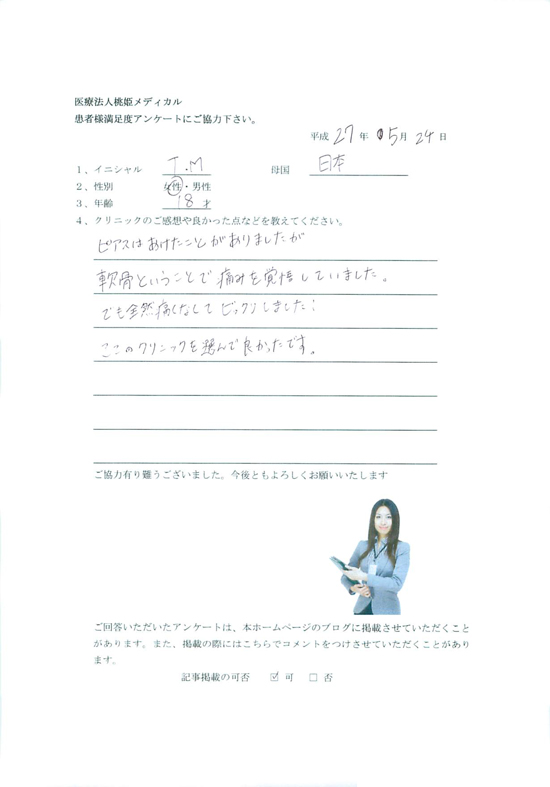 医療法人桃姫メディカル
患者様満足度アンケートにご協力下さい。
平成 27 年 05月 24 日
1、イニシャル T.M 母国 日本
2、性別 女性・男性
3、年齢 18 才
4、クリニックのご感想や良かった点などを教えてください。
ピアスはあけたことがありましたが
軟骨ということで痛みを覚悟していました。
でも全然痛くなくてビックリしました!
ここのクリニックを選んで良かったです。
ご協力有り難うございました。今後ともよろしくお願いいたします
ご回答いただいたアンケートは、本ホームページのブログに掲載させていただくこと
があります。また、掲載の際にはこちらでコメントをつけさせていただくことがあり
ます。
記事掲載の可否 ☑ 可 □ 否